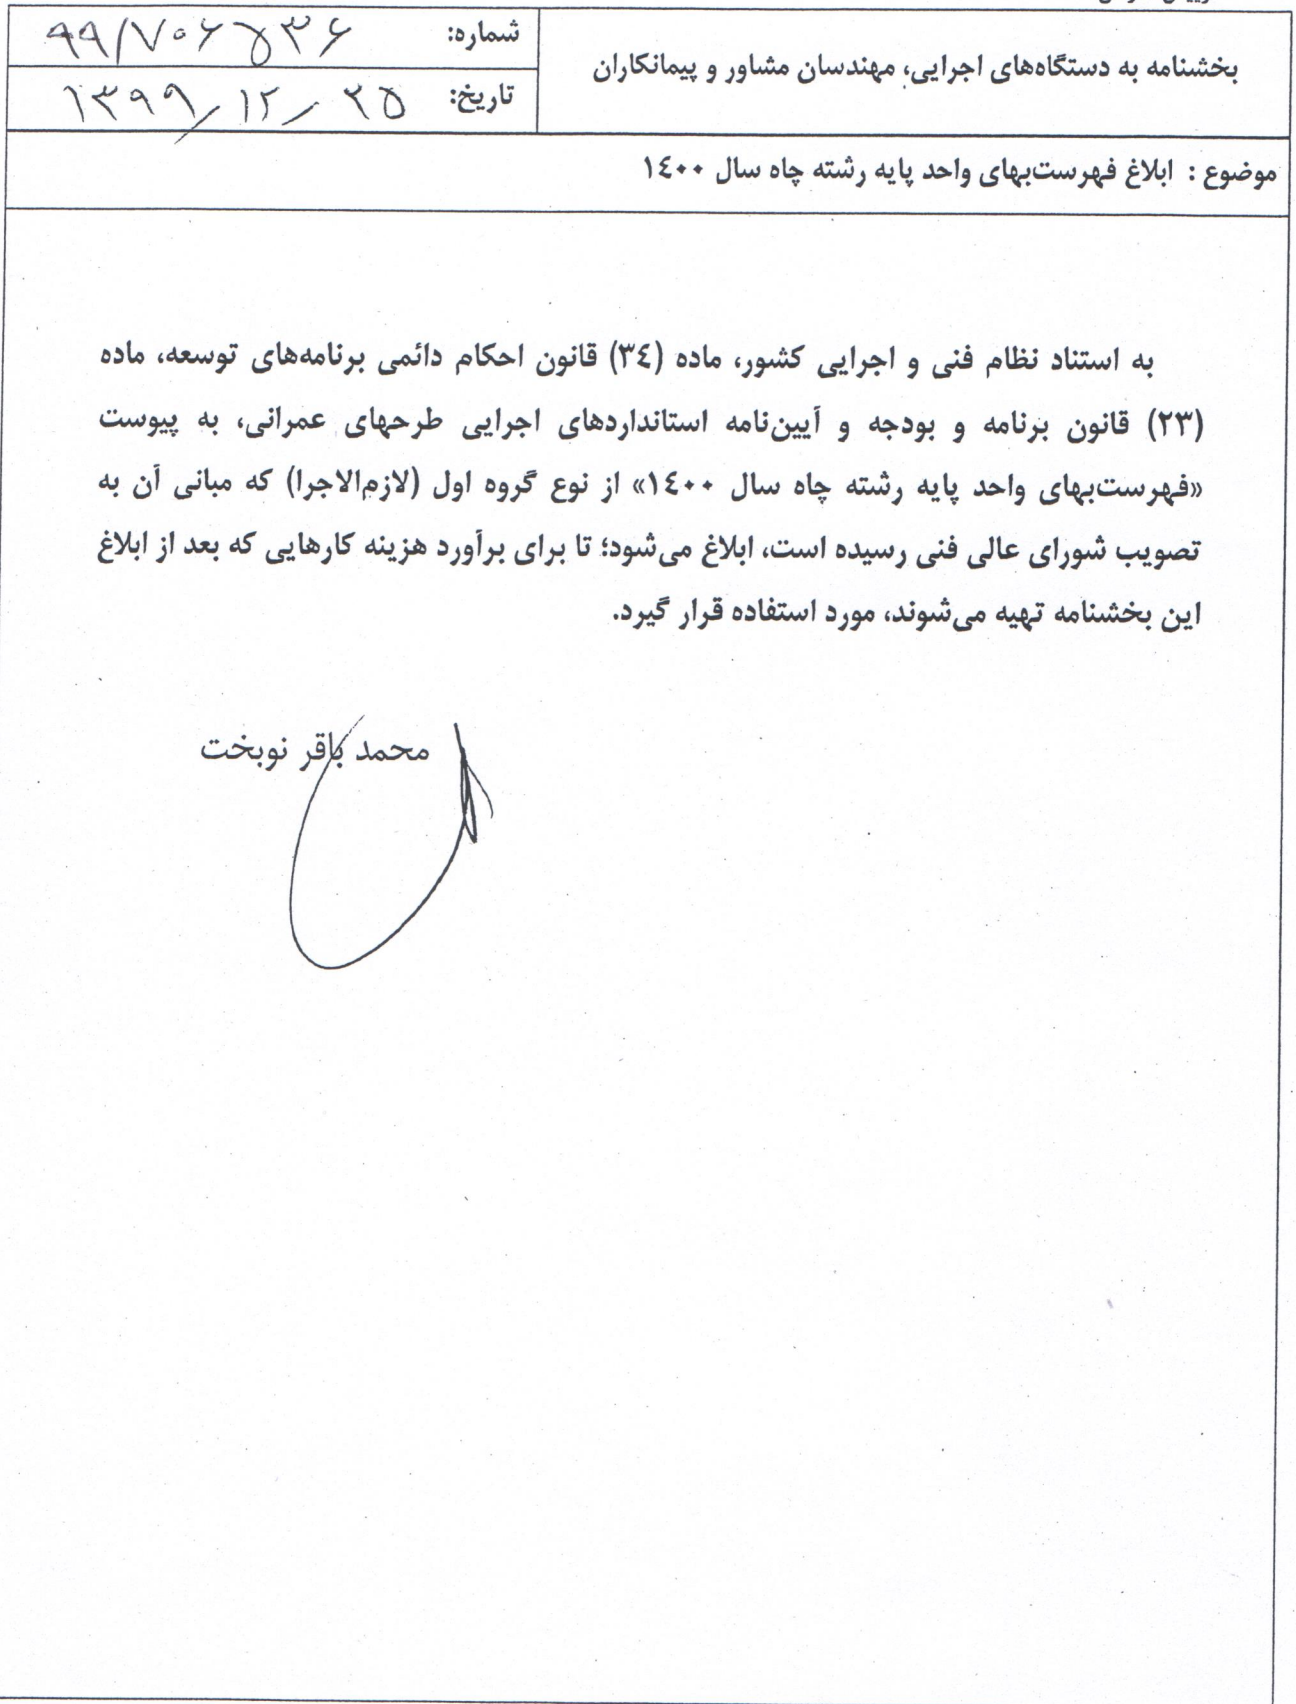 بخشنامه به دستگاه‌های اجرایی، مهندسان مشاور و پیمانکاران
شماره: ۹۹/۷۰۶۵۳۶
تاریخ: ۱۳۹۹/۱۲/۲۵
موضوع : ابلاغ فهرست‌بهای واحد پایه رشته چاه سال ۱۴۰۰
به استناد نظام فنی و اجرایی کشور، ماده (۳۴) قانون احکام دائمی برنامه‌های توسعه، ماده
(۲۳) قانون برنامه و بودجه و آیین‌نامه استانداردهای اجرایی طرحهای عمرانی، به پیوست
«فهرست‌بهای واحد پایه رشته چاه سال ۱۴۰۰» از نوع گروه اول (لازم‌الاجرا) که مبانی آن به
تصویب شورای عالی فنی رسیده است، ابلاغ می‌شود؛ تا برای برآورد هزینه کارهایی که بعد از ابلاغ
این بخشنامه تهیه می‌شوند، مورد استفاده قرار گیرد.
محمد باقر نوبخت